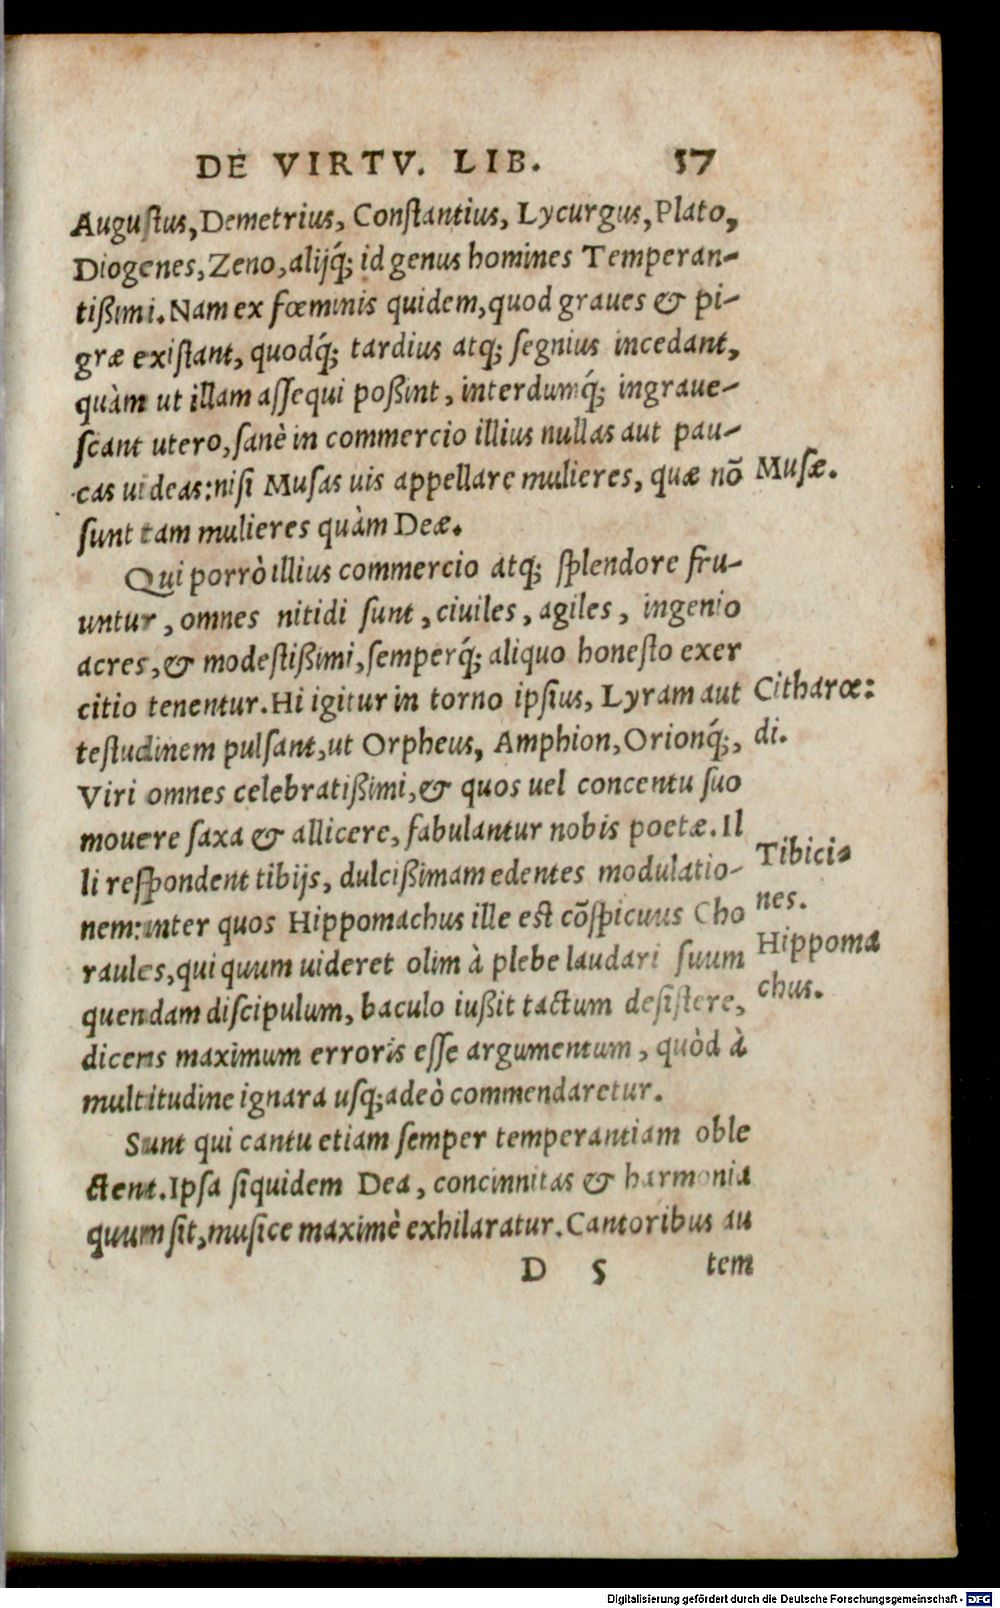 DE VIRTV. LIB. 57
Auguſtus, Demetrius, Conſtantius, Lycurgus, Plato,
Diogenes, Zeno, alijq́; id genus homines Temperan-
tißimi. Nam ex fœminis quidem, quod graues & pi-
græ exiſtant, quodq́; tardius atq; ſegnius incedant,
quàm ut illam aſſequi poßint, interdumq́; ingraue-
ſcant utero, ſanè in commercio illius nullas aut pau-
cas uideas: niſi Muſas uis appellare mulieres, quæ nō
Muſæ.
ſunt tam mulieres quàm Deæ.
Qui porrò illius commercio atq; ſplendore fru-
untur, omnes nitidi ſunt, ciuiles, agiles, ingenio
acres, & modeſtißimi, ſemperq́; aliquo honeſto exer
citio tenentur. Hi igitur in torno ipſius, Lyram aut
Citharœ:
teſtudinem pulſant, ut Orpheus, Amphion, Orionq́;,
di.
Viri omnes celebratißimi, & quos uel concentu ſuo
mouere ſaxa & allicere, fabulantur nobis poetæ. Il
li reſpondent tibijs, dulcißimam edentes modulatio-
Tibici-
nem: inter quos Hippomachus ille eſt cōſpicuus Cho
nes.
raules, qui quum uideret olim à plebe laudari ſuum
Hippoma
quendam diſcipulum, baculo iußit tactum deſiſtere,
chus.
dicens maximum erroris eſſe argumentum, quòd à
multitudine ignara uſq; adeò commendaretur.
Sunt qui cantu etiam ſemper temperantiam oble
ctent. Ipſa ſiquidem Dea, concinnitas & harmonia
quum ſit, muſice maximè exhilaratur. Cantoribus au
D 5 tem
Digitalisierung gefördert durch die Deutsche Forschungsgemeinschaft - DFG